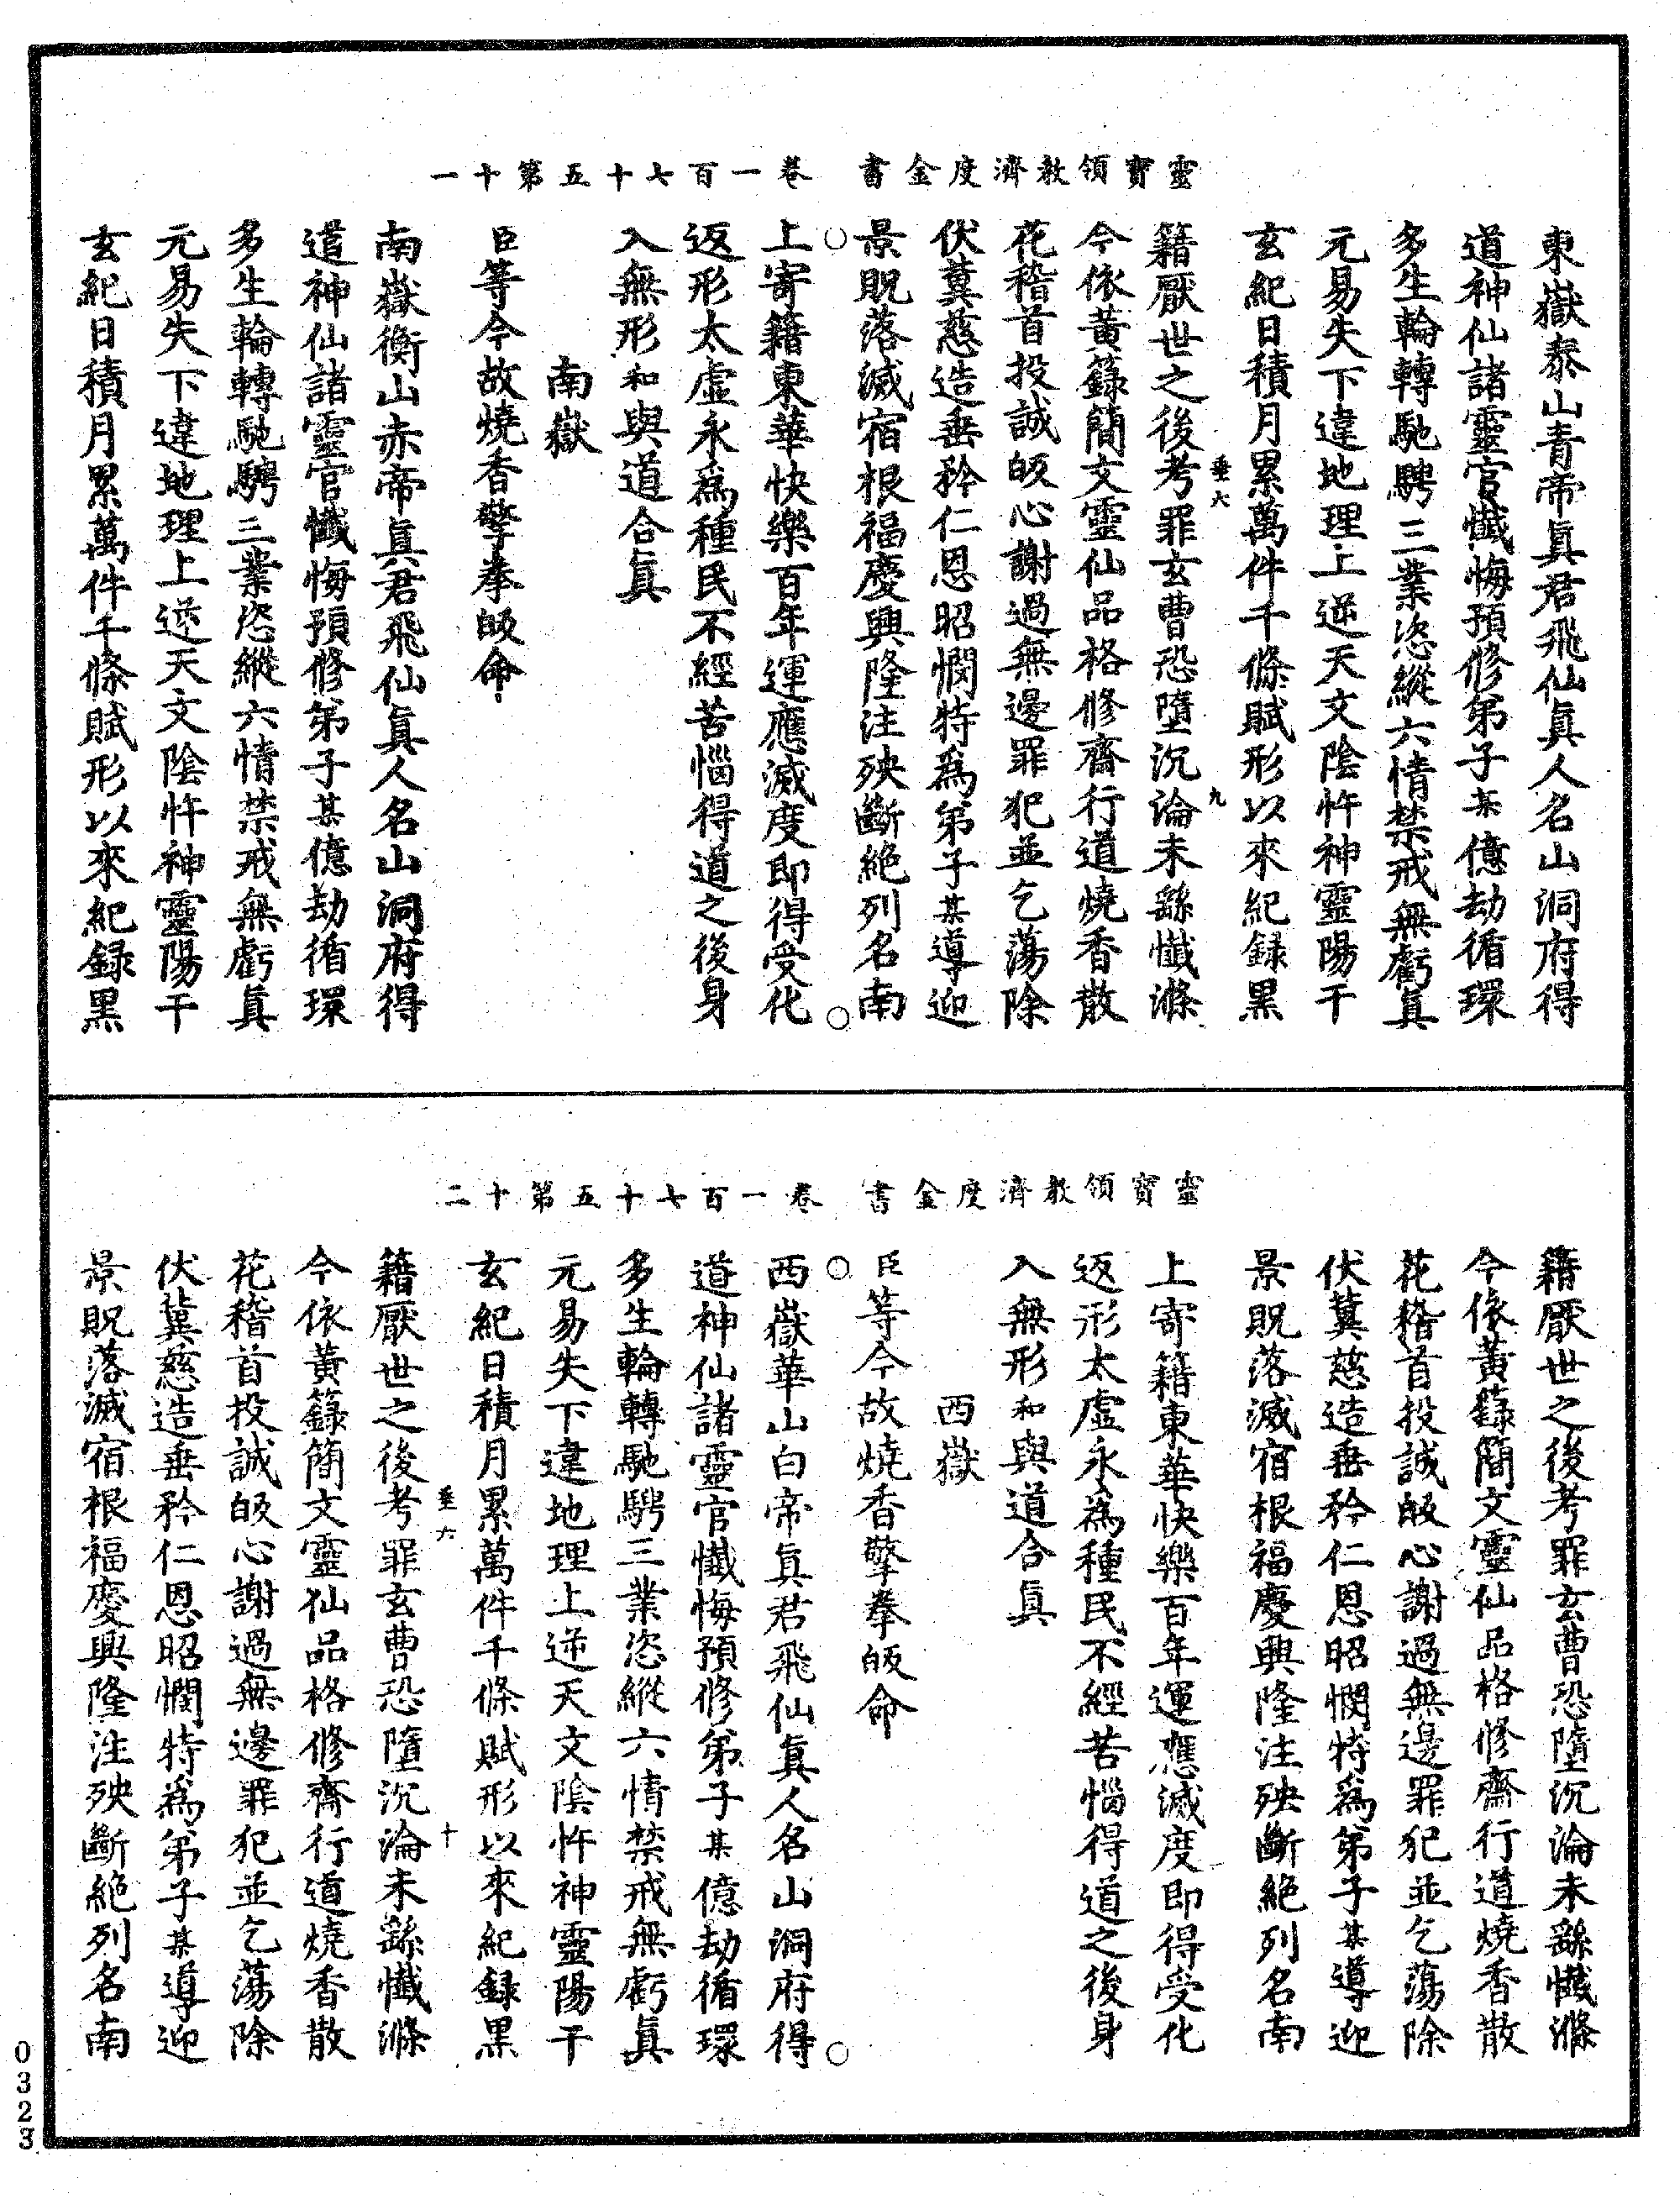 靈寶領教濟度金書　卷一百七十五第十一
東嶽泰山青帝真君飛仙真人名山洞府得
道神仙諸靈官懺悔預修弟子某億劫循環
多生輪轉馳騁三業恣縱六情禁戒無虧真
元易失下違地理上逆天文陰忤神靈陽干
玄紀日積月累萬件千條賦形以來紀録黑
垂六　九
籍厭世之後考罪玄曹恐墮沉淪未繇懺滌
今依黃籙簡文靈仙品格修齋行道燒香散
花稽首投誠皈心謝過無邊罪犯並乞蕩除
伏冀慈造垂矜仁恩昭憫特為弟子某導迎
景貺落滅宿根福慶興隆注殃斷絕列名南
上寄籍東華快樂百年運應滅度即得受化
返形太虛永為種民不經苦惱得道之後身
入無形和與道合真
南嶽
臣等今故燒香擎拳皈命
南嶽衡山赤帝真君飛仙真人名山洞府得
道神仙諸靈官懺悔預修弟子某億劫循環
多生輪轉馳騁三業恣縱六情禁戒無虧真
元易失下違地理上逆天文陰忤神靈陽干
玄紀日積月累萬件千條賦形以來紀録黑
靈寶領教濟度金書　卷一百七十五第十二
籍厭世之後考罪玄曹恐墮沉淪未繇懺滌
今依黃籙簡文靈仙品格修齋行道燒香散
花稽首投誠皈心謝過無邊罪犯並乞蕩除
伏冀慈造垂矜仁恩昭憫特為弟子某導迎
景貺落滅宿根福慶興隆注殃斷絕列名南
上寄籍東華快樂百年運應滅度即得受化
返形太虛永為種民不經苦惱得道之後身
入無形和與道合真
西嶽
臣等今故燒香擎拳皈命
西嶽華山白帝真君飛仙真人名山洞府得
道神仙諸靈官懺悔預修弟子某億劫循環
多生輪轉馳騁三業恣縱六情禁戒無虧真
元易失下違地理上逆天文陰忤神靈陽干
玄紀日積月累萬件千條賦形以來紀録黑
垂六　十
籍厭世之後考罪玄曹恐墮沉淪未繇懺滌
今依黃籙簡文靈仙品格修齋行道燒香散
花稽首投誠皈心謝過無邊罪犯並乞蕩除
伏冀慈造垂矜仁恩昭憫特為弟子某導迎
景貺落滅宿根福慶興隆注殃斷絕列名南
0323